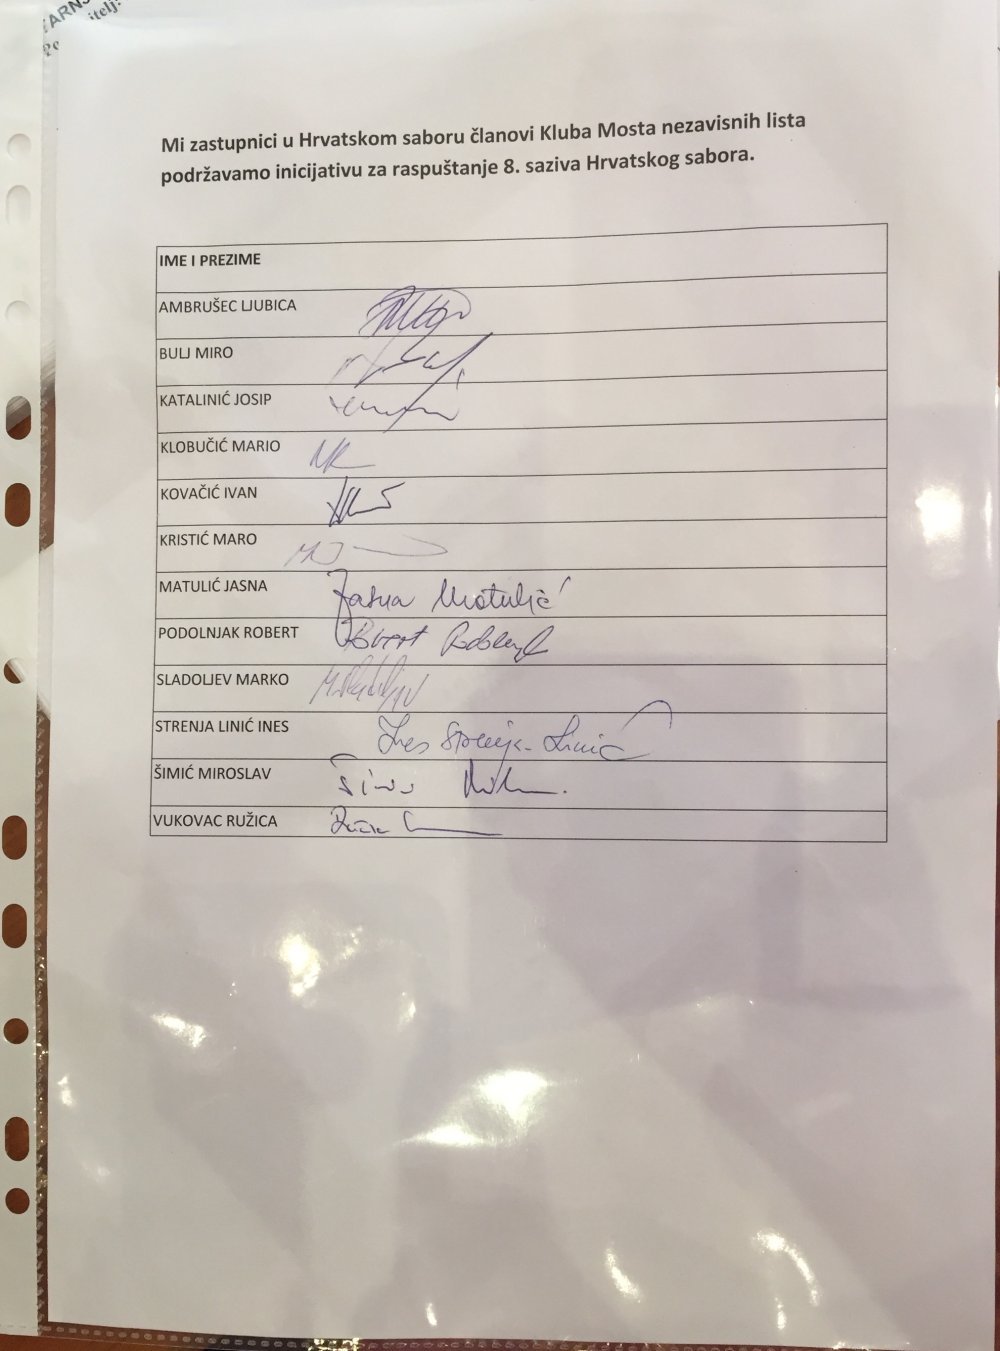 Mi zastupnici u Hrvatskom saboru članovi Kluba Mosta nezavisnih lista
podržavamo inicijativu za raspuštanje 8. saziva Hrvatskog sabora.
IME I PREZIME
AMBRUŠEC LJUBICA
BULJ MIRO
KATALINIĆ JOSIP
KLOBUČIĆ MARIO
KOVAČIĆ IVAN
KRISTIĆ MARO
MATULIĆ JASNA Jasna Matulić
PODOLNJAK ROBERT Robert
SLADOLJEV MARKO
STRENJA LINIĆ INES Ines Strenja-Linić
ŠIMIĆ MIROSLAV
VUKOVAC RUŽICA